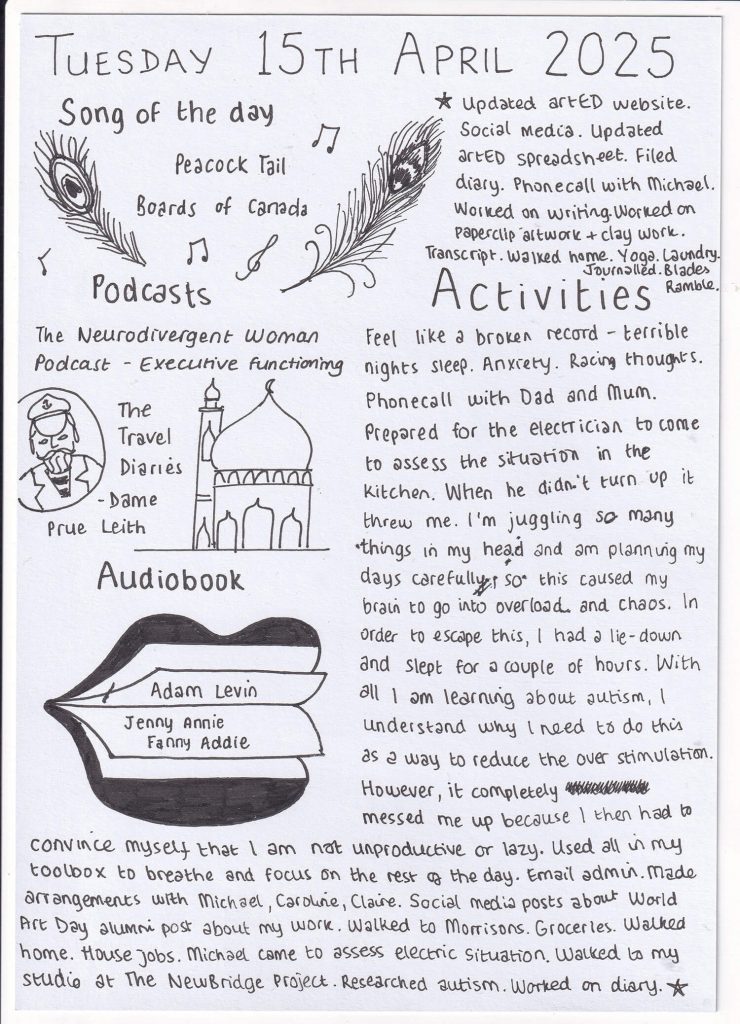 TUESDAY 15TH APRIL 2025
Song of the day
Peacock Tail
Boards of Canada
Podcasts
The Neurodivergent Woman
Podcast - Executive functioning
The
Travel
Diaries
- Dame
Prue Leith
Audiobook
Adam Levin
Jenny Annie
Fanny Addie
Activities
Feel like a broken record - terrible
nights sleep. Anxiety. Racing thoughts.
Phonecall with Dad and Mum.
Prepared for the electrician to come
to assess the situation in the
kitchen. When he didn't turn up it
threw me. I'm juggling so many
things in my head and am planning my
days carefully, so this caused my
brain to go into overload and chaos. In
order to escape this, I had a lie-down
and slept for a couple of hours. With
all I am learning about autism, I
understand why I need to do this
as a way to reduce the over stimulation.
However, it completely
messed me up because I then had to
convince myself that I am not unproductive or lazy. Used all in my
toolbox to breathe and focus on the rest of the day. Email admin. Made
arrangements with Michael, Caroline, Claire. Social media posts about World
Art Day alumni post about my work. Walked to Morrisons. Groceries. Walked
home. House jobs. Michael came to assess electric situation. Walked to my
studio at The NewBridge Project. Researched autism. Worked on diary. ★
★ Updated artED website.
Social media. Updated
artED spreadsheet. Filed
diary. Phonecall with Michael.
Worked on writing. Worked on
paperclip artwork + clay work.
Transcript. Walked home. Yoga. Laundry.
Journalled. Blades
Ramble.